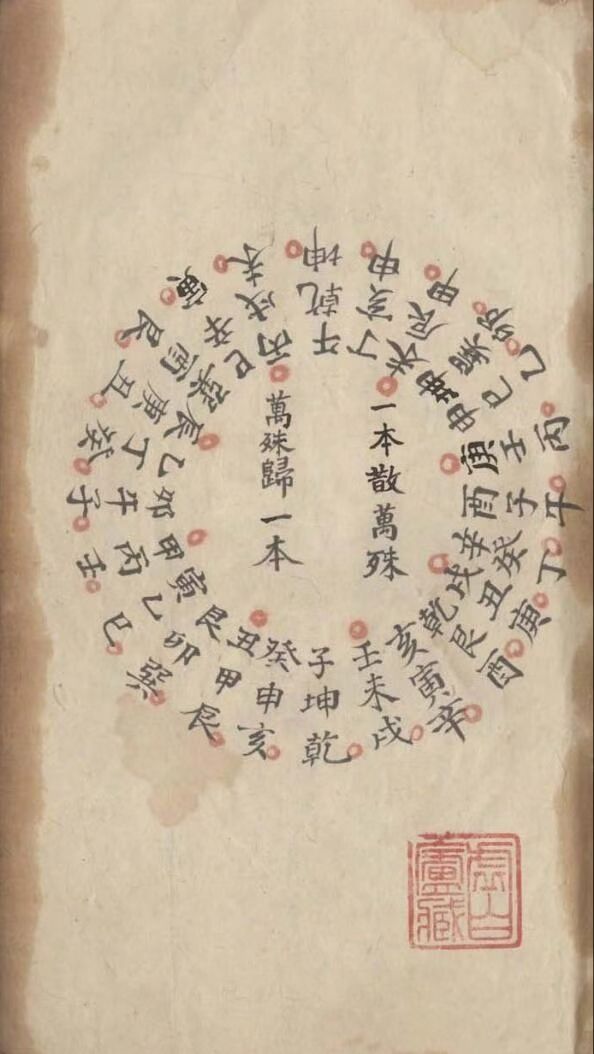 一本散萬殊
萬殊歸一本
子癸丑艮寅甲卯乙辰巽巳丙午丁未坤申庚酉辛戌乾亥壬
坤申甲卯乙丙午丁庚酉辛戌乾亥辰巳壬子癸丑艮寅未
乾亥辰巽巳壬子癸丑艮寅未坤申甲卯乙丙午丁庚酉辛戌
虛白
廬藏